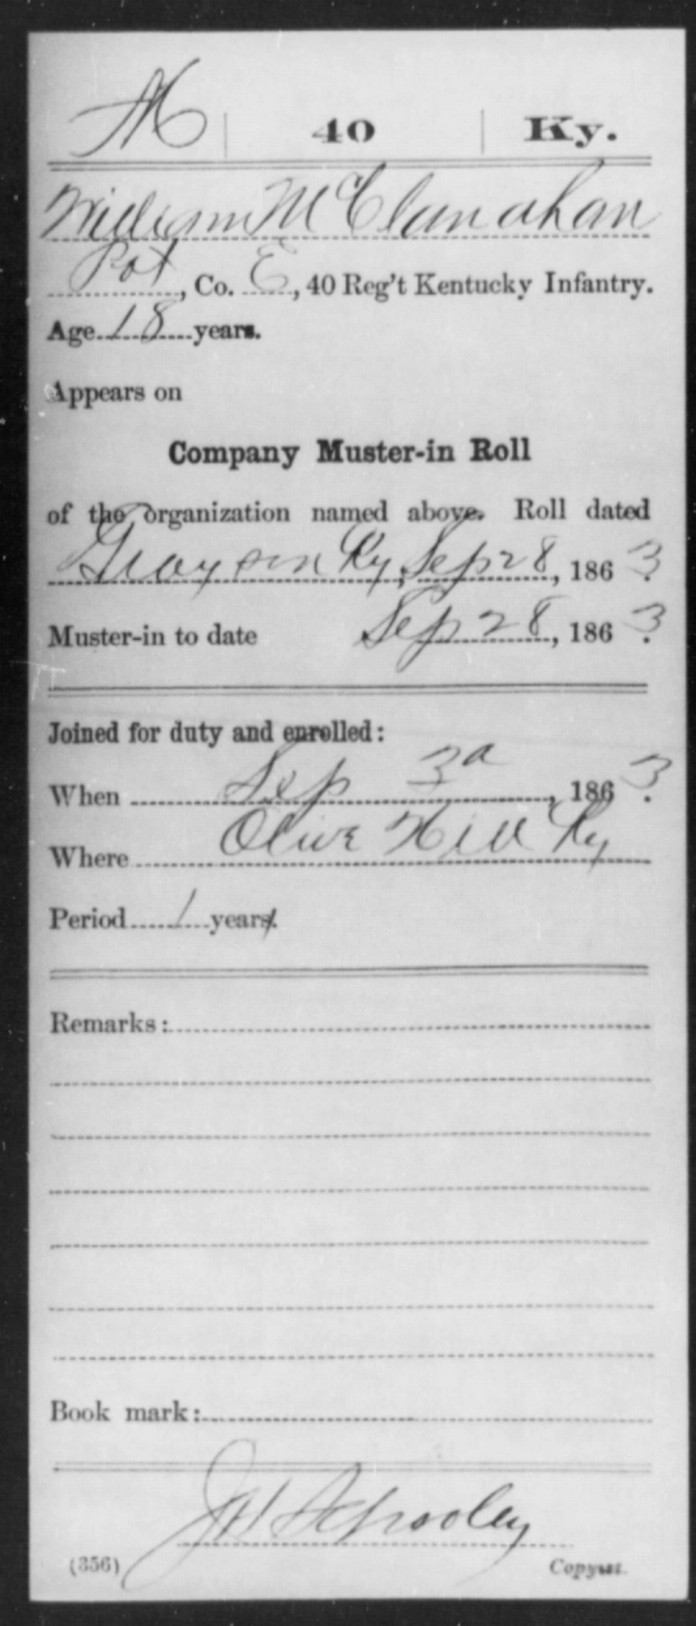 M | 40 | Ky.
William McClanahan
Pvt, Co. E, 40 Reg't Kentucky Infantry.
Age 18 years.
Appears on
Company Muster-in Roll
of the organization named above. Roll dated
Grayson Ky, Sep 28, 1863.
Muster-in to date Sep 28, 1863.
Joined for duty and enrolled:
When Sep 3d, 1863.
Where Olive Hill Ky
Period 1 years.
Remarks:
Book mark:
J H Schooley
(356) Copyist.